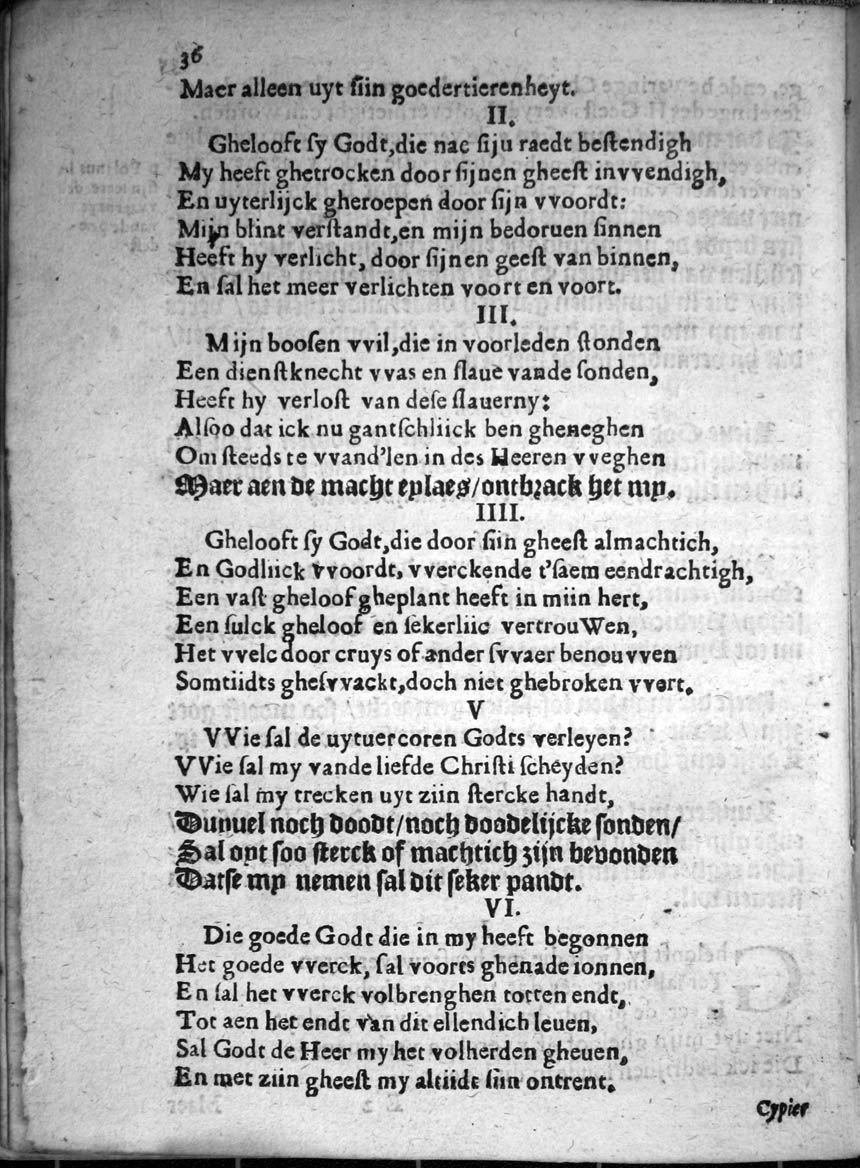 36
Maer alleen uyt ſiin goedertierenheyt.
II.
Ghelooft ſy Godt,die nae ſiju raedt beſtendigh
My heeft ghetrocken door ſijnen gheeſt invvendigh,
En uyterlijck gheroepen door ſijn vvoordt:
Mijn blint verſtandt,en mijn bedoruen ſinnen
Heeft hy verlicht, door ſijnen geeſt van binnen,
En ſal het meer verlichten voort en voort.
III.
Mijn booſen vvil,die in voorleden ſtonden
Een dienſtknecht vvas en ſlaue vande ſonden,
Heeft hy verloſt van deſe ſlauerny:
Alſoo dat ick nu gantſchliick ben gheneghen
Om ſteeds te vvand'len in des Heeren vveghen
Maer aen de macht eylaes/ontbrack het my.
IIII.
Ghelooft ſy Godt,die door ſiin gheeſt almachtich,
En Godliick vvoordt, vverckende t'ſaem eendrachtigh,
Een vaſt gheloof gheplant heeft in miin hert,
Een ſulck gheloof en ſekerliic vertrouWen,
Het vvelc door cruys of ander ſvvaer benouvven
Somtiidts gheſvvackt,doch niet ghebroken vvert.
V
VVie ſal de uytuercoren Godts verleyen?
VVie ſal my vande liefde Chriſti ſcheyden?
Wie ſal my trecken uyt ziin ſtercke handt,
Duyuel noch doodt/noch doodelijcke ſonden/
Sal oyt ſoo ſterck of machtich zijn bevonden
Datſe my nemen ſal dit ſeker pandt.
VI.
Die goede Godt die in my heeft begonnen
Het goede vverck, ſal voorts ghenade ionnen,
En ſal het vverck volbrenghen totten endt,
Tot aen het endt van dit ellendich leuen,
Sal Godt de Heer my het volherden gheuen,
En met ziin gheeſt my altiidt ſiin ontrent.
Cypier